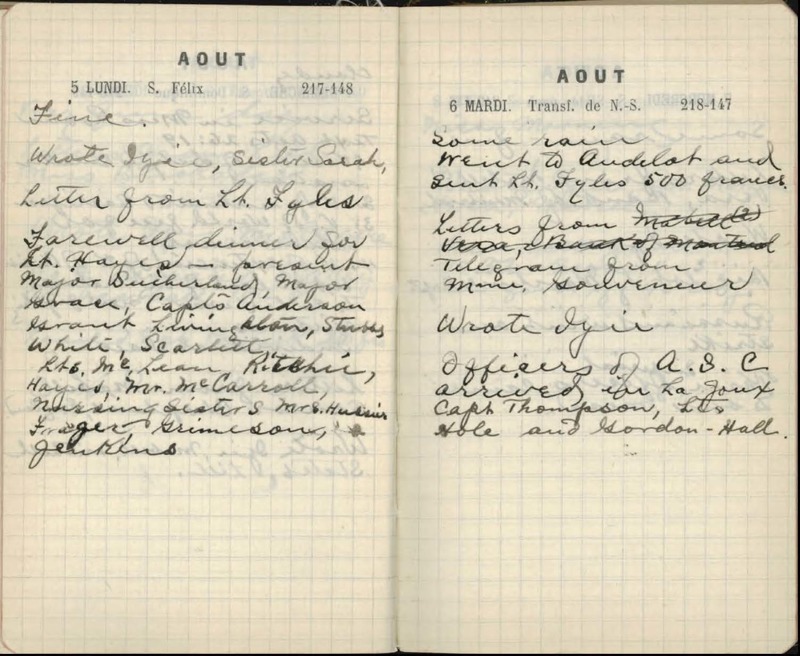 AOUT
5 LUNDI. S. Félix 217-148
Fine.
Wrote Izie, Sister Sarah,
Letter from Lt. Fyles
Farewell dinner for
Lt. Hayes – present
Major Sutherland, Major
Grace, Capts Anderson
Grant Livingston, Stubbs
White, Scarlett
Lts. Mc Lean Ritchie,
Hayes, Mr. McCarroll,
Nursing Sisters Mrs.
Fraser Grimeson,
Jenkins
AOUT
6 MARDI. Transf. de N.-S. 218-147
Some rain
Went to Andelot and
sent Lt. Fyles 500 francs.
Letters from Mabelle
Vera, Bank of Montreal
Telegram from
Mme. Gouveneur
Wrote Izie
Officers of A.S.C
arrived for La Joux
Capt Thompson, Lts
Hole and Gordon-Hall.